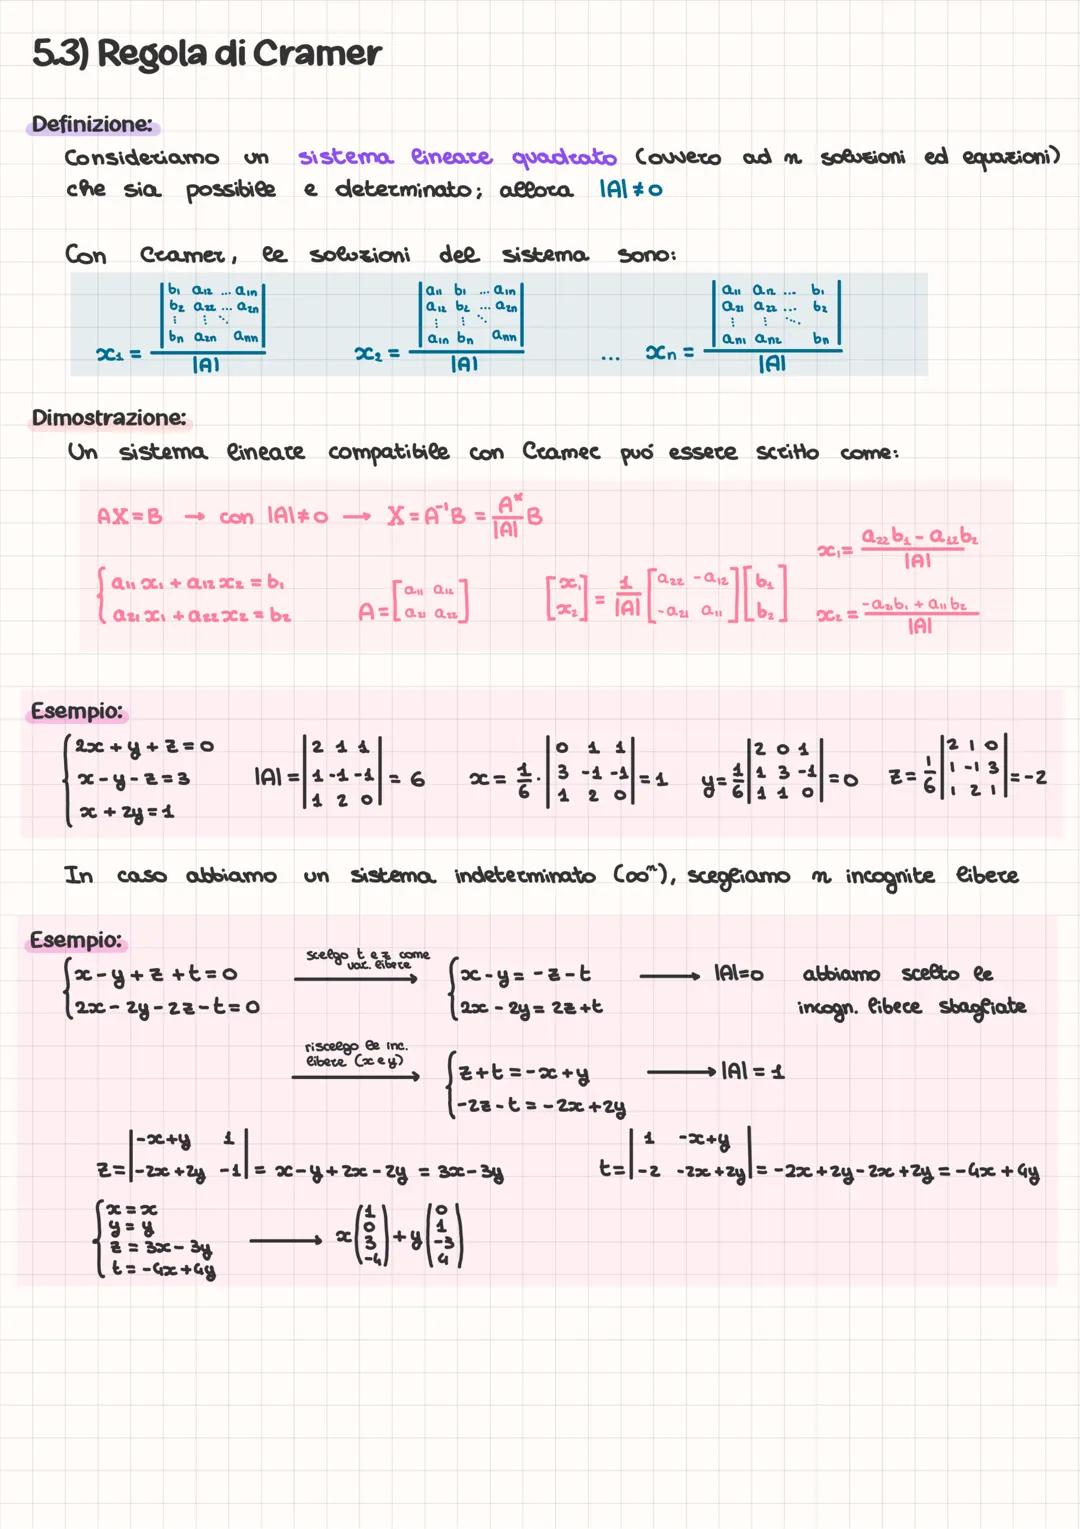 5.3) Regola di Cramer
Definizione:
Consideriamo un sistema lineare quadrato (ovvero ad n soluzioni ed equazioni)
che sia possibile e determinato; allora |A|≠0
Con Cramer, le soluzioni del sistema sono:
x₁ = |b₁ a₁₂ ... a₁ₙ; b₂ a₂₂ ... a₂ₙ; ⋮ ⋮ ⋱; bₙ a₂ₙ aₙₙ| / |A|   x₂ = |a₁₁ b₁ ... a₁ₙ; a₁₂ b₂ ... a₂ₙ; ⋮ ⋮ ⋱; a₁ₙ bₙ aₙₙ| / |A|   ...   xₙ = |a₁₁ a₁₂ ... b₁; a₂₁ a₂₂ ... b₂; ⋮ ⋮ ⋱; aₙ₁ aₙ₂ bₙ| / |A|
Dimostrazione:
Un sistema lineare compatibile con Cramec puó essere scritto come:
AX=B → con |A|≠0 → X=A⁻¹B = A*/|A| B
{a₁₁x₁ + a₁₂x₂ = b₁; a₂₁x₁ + a₂₂x₂ = b₂   A=[a₁₁ a₁₂; a₂₁ a₂₂]   [x₁; x₂] = 1/|A| [a₂₂ -a₁₂; -a₂₁ a₁₁][b₁; b₂]   x₁= (a₂₂b₁ - a₁₂b₂)/|A|   x₂ = (-a₂₁b₁ + a₁₁b₂)/|A|
Esempio:
{2x + y + z = 0; x - y - z = 3; x + 2y = 1   |A| = |2 1 1; 1 -1 -1; 1 2 0| = 6   x = 1/6 · |0 1 1; 3 -1 -1; 1 2 0| = 1   y = 1/6 |2 0 1; 1 3 -1; 1 1 0| = 0   z = 1/6 |2 1 0; 1 -1 3; 1 2 1| = -2
In caso abbiamo un sistema indeterminato (∞ⁿ), scegliamo n incognite libere
Esempio:
{x - y + z + t = 0; 2x - 2y - 2z - t = 0   scelgo t e z come var. libere →   {x - y = -z - t; 2x - 2y = 2z + t   → |A|=0   abbiamo scelto le
incogn. libece sbagliate
riscelgo le inc. libere (x e y) →   {z + t = -x + y; -2z - t = -2x + 2y   → |A| = 1
z = |-x+y 1; -2x+2y -1| = x - y + 2x - 2y = 3x - 3y   t = |1 -x+y; -2 -2x+2y| = -2x + 2y - 2x + 2y = -4x + 4y
{x = x; y = y; z = 3x - 3y; t = -4x + 4y   →   x(1; 0; 3; -4) + y(0; 1; -3; 4)